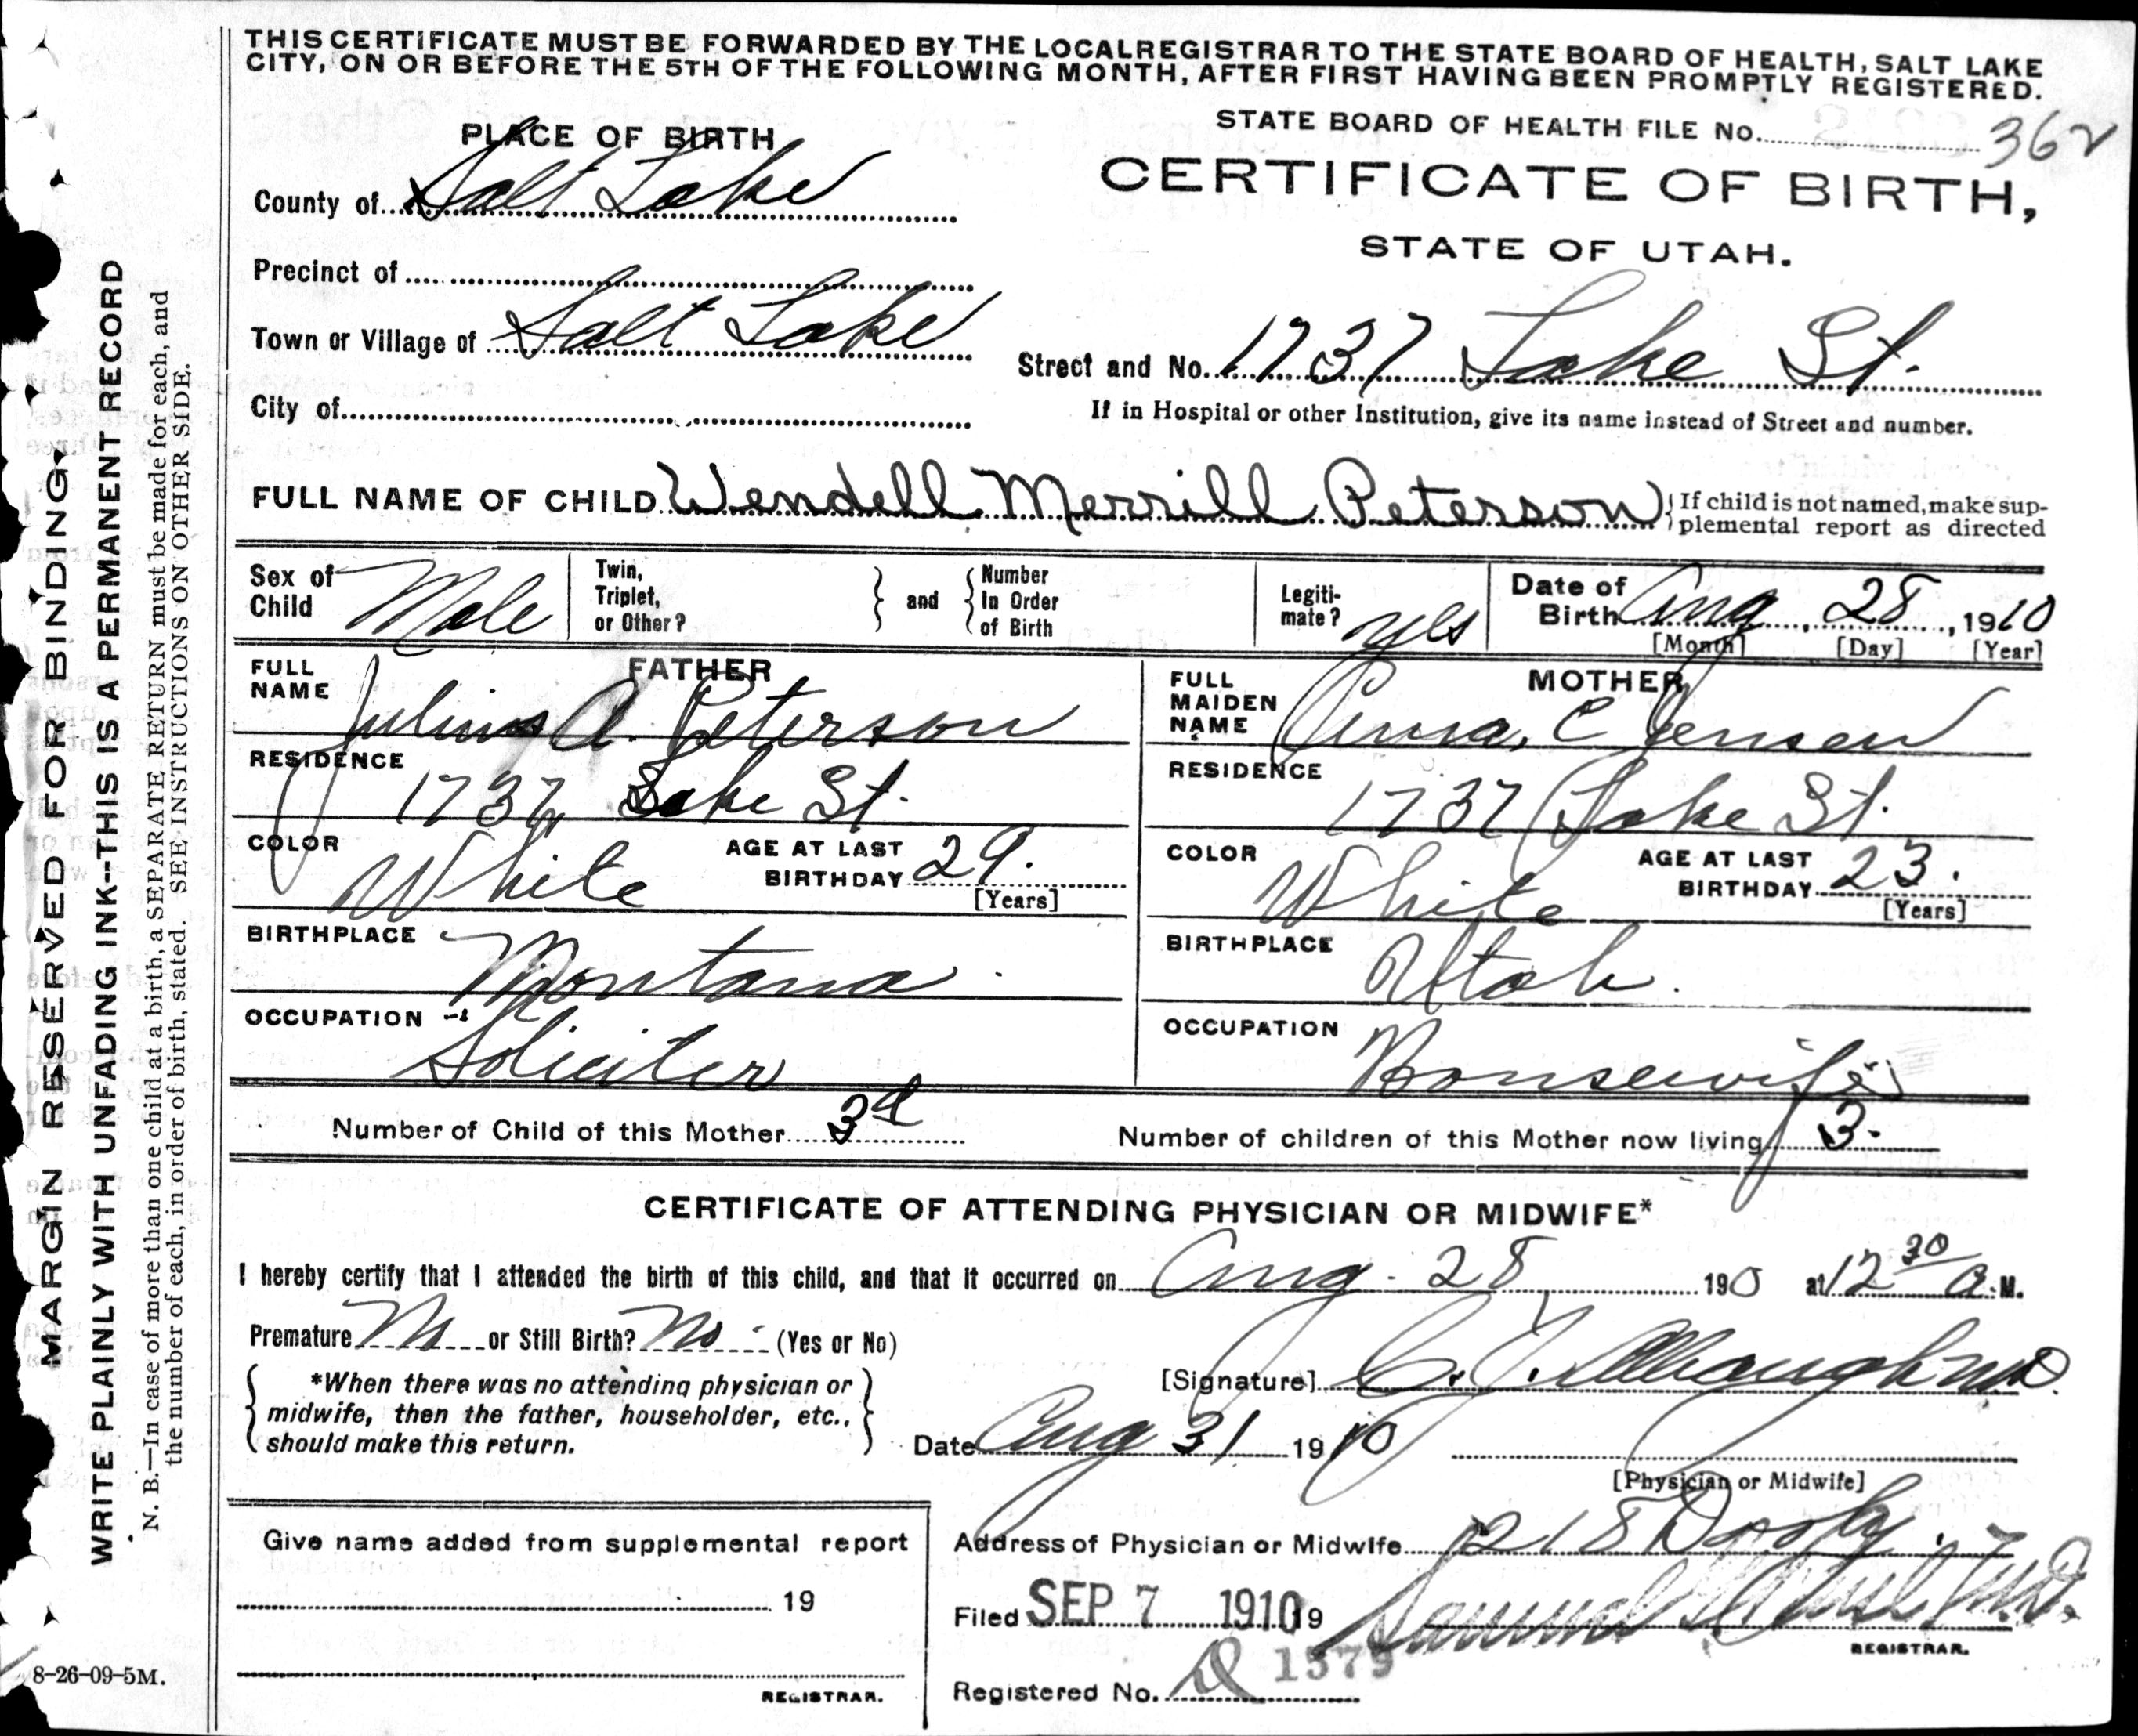 THIS CERTIFICATE MUST BE FORWARDED BY THE LOCAL REGISTRAR TO THE STATE BOARD OF HEALTH, SALT LAKE
CITY, ON OR BEFORE THE 5TH OF THE FOLLOWING MONTH, AFTER FIRST HAVING BEEN PROMPTLY REGISTERED.
STATE BOARD OF HEALTH FILE No. 362
CERTIFICATE OF BIRTH,
STATE OF UTAH.
PLACE OF BIRTH
County of Salt Lake
Precinct of
Town or Village of Salt Lake
Street and No. 1737 Lake St.
City of
If in Hospital or other Institution, give its name instead of Street and number.
FULL NAME OF CHILD Wendell Merrill Peterson { If child is not named, make sup-
plemental report as directed
Sex of Child Male
Twin, Triplet, or Other? } and { Number In Order of Birth
Legiti-mate? yes
Date of Birth Aug, 28, 1910
[Month] [Day] [Year]
FATHER
FULL NAME Julius A. Peterson
RESIDENCE
1737 Lake St.
COLOR White AGE AT LAST BIRTHDAY 29.
[Years]
BIRTHPLACE
Montana.
OCCUPATION
Soliciter
MOTHER
FULL MAIDEN NAME Anna, C Jensen
RESIDENCE
1737 Lake St.
COLOR White AGE AT LAST BIRTHDAY 23.
[Years]
BIRTHPLACE
Utah.
OCCUPATION
Housewife
Number of Child of this Mother 3d
Number of children of this Mother now living 3.
CERTIFICATE OF ATTENDING PHYSICIAN OR MIDWIFE*
I hereby certify that I attended the birth of this child, and that it occurred on Aug. 28 190 at 12 30 a.M.
Premature No or Still Birth? No. (Yes or No)
*When there was no attending physician or
midwife, then the father, householder, etc.,
should make this return.
[Signature]
Date Aug 31 1910
[Physician or Midwife]
Address of Physician or Midwife 218 Dooly.
Give name added from supplemental report
19
REGISTRAR.
Filed SEP 7 1910 19
REGISTRAR.
Registered No. 1579
MARGIN RESERVED FOR BINDING.
WRITE PLAINLY WITH UNFADING INK--THIS IS A PERMANENT RECORD
N. B.—In case of more than one child at a birth, a SEPARATE RETURN must be made for each, and
the number of each, in order of birth, stated. SEE INSTRUCTIONS ON OTHER SIDE.
8-26-09-5M.